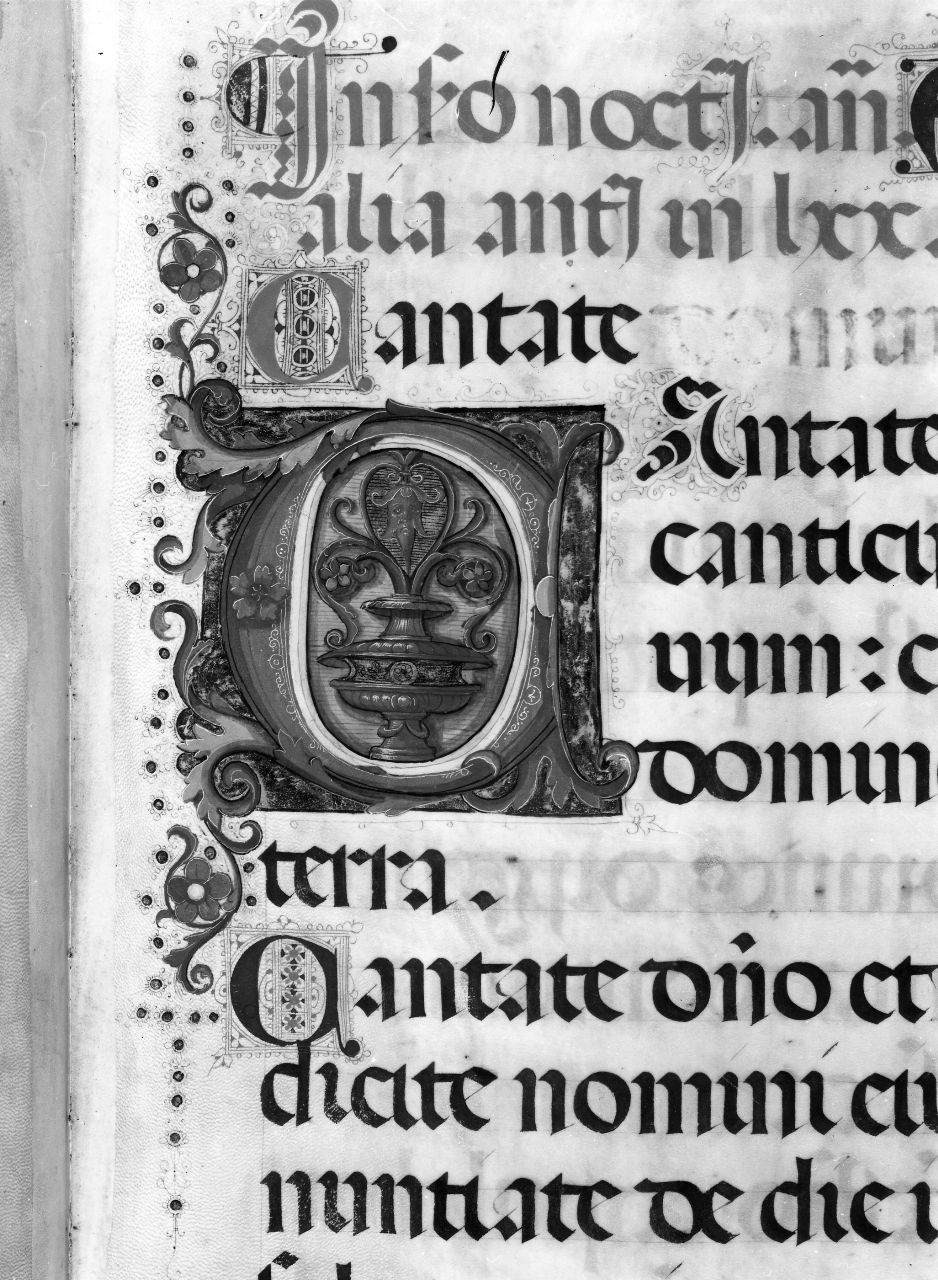 In s̄o noct̄. an̄.
alia ant̄ in lxx.
Cantate
CAntate
canticu
uum : c
domin
terra .
Cantate dn̄o et
dicite nomini eiu
nuntiate de die i